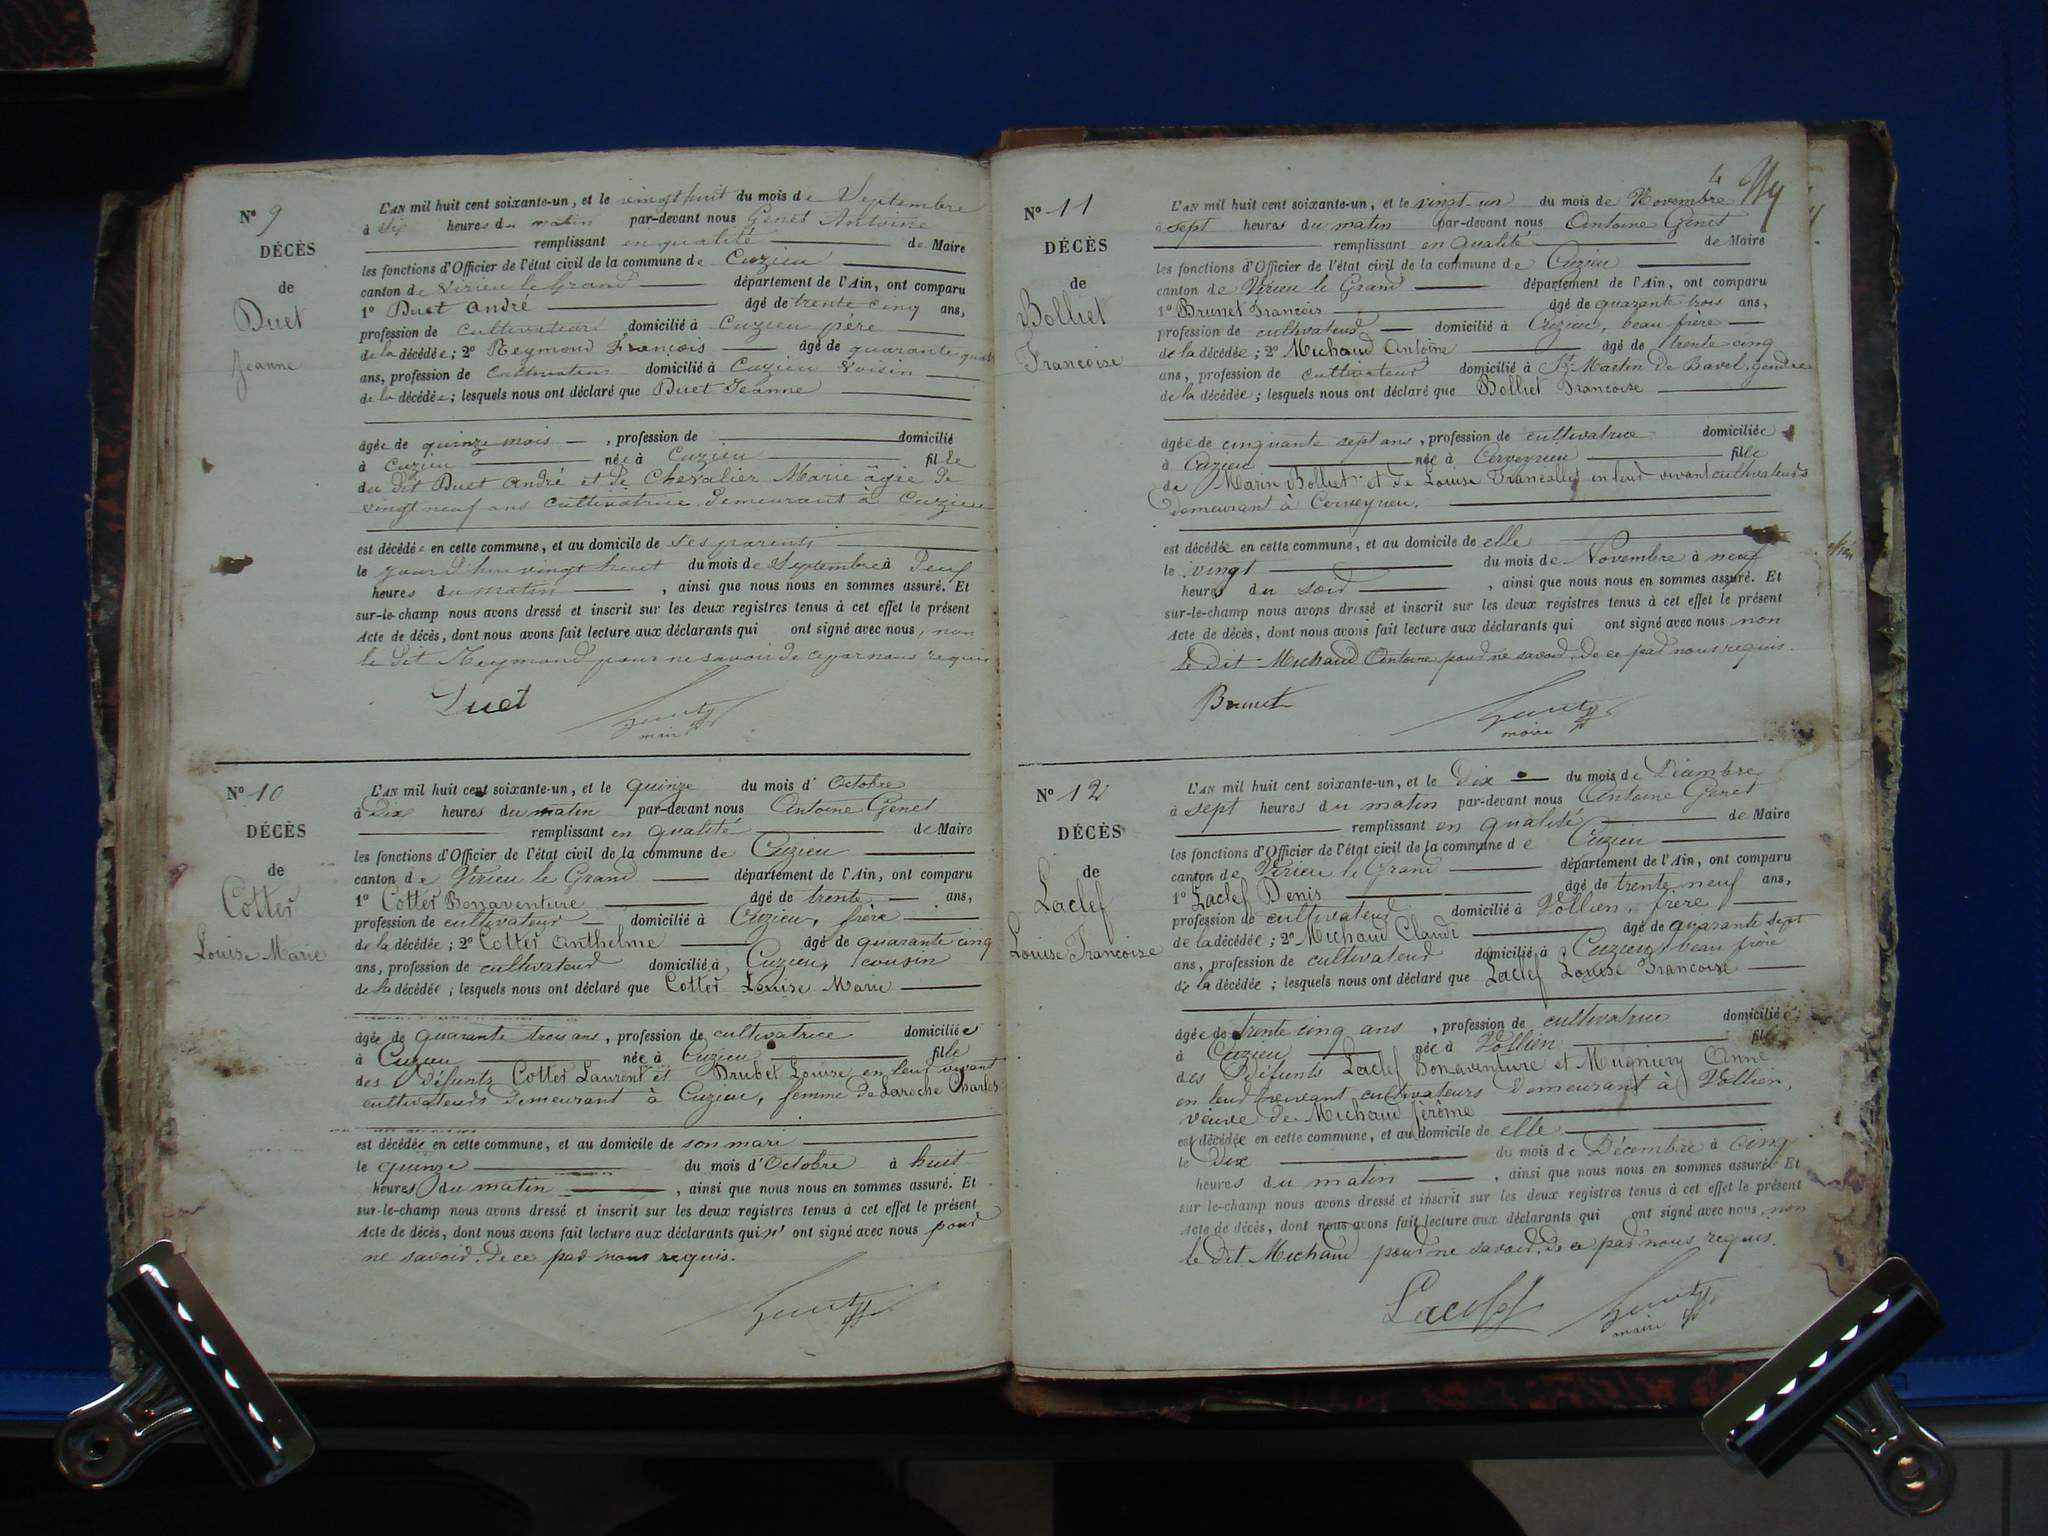 N° 9
DÉCÈS
de
Duet
Jeanne
L'AN mil huit cent soixante-un, et le vingt huit du mois de Septembre
à dix heures du matin par-devant nous Genet Antoine
remplissant en qualité de Maire
les fonctions d'Officier de l'état civil de la commune de Cuzieu
canton de Virieu le Grand département de l'Ain, ont comparu
1° Duet André âgé de trente cinq ans,
profession de cultivateur domicilié à Cuzieu père
de la décédée; 2° Reymond François âgé de quarante quatre
ans, profession de cultivateur domicilié à Cuzieu voisin
de la décédée; lesquels nous ont déclaré que Duet Jeanne
âgée de quinze mois, profession de domicilié
à Cuzieu née à Cuzieu fille
du dit Duet André et de Chevalier Marie âgée de
vingt neuf ans cultivatrice demeurant à Cuzieu
est décédée en cette commune, et au domicile de ses parents
le jourd'hui vingt huit du mois de Septembre à
heures du matin, ainsi que nous nous en sommes assuré. Et
sur-le-champ nous avons dressé et inscrit sur les deux registres tenus à cet effet le présent
Acte de décès, dont nous avons fait lecture aux déclarants qui ont signé avec nous, non
le dit Reymond pour ne savoir de ce par nous requis
Duet
maire
N° 10
DÉCÈS
de
Cotter
Louise Marie
L'AN mil huit cent soixante-un, et le quinze du mois d'Octobre
à Dix heures du matin par-devant nous Antoine Genet
remplissant en qualité de Maire
les fonctions d'Officier de l'état civil de la commune de Cuzieu
canton de Virieu le Grand département de l'Ain, ont comparu
1° Cotter Bonaventure âgé de trente ans,
profession de cultivateur domicilié à Cuzieu, frère
de la décédée; 2° Cotter Anthelme âgé de quarante cinq
ans, profession de cultivateur domicilié à Cuzieu, cousin
de la décédée; lesquels nous ont déclaré que Cotter Louise Marie
âgée de quarante trois ans, profession de cultivatrice domiciliée
à Cuzieu née à Cuzieu fille
des défunts Cotter Laurent et Drubet Louise en leur vivant
cultivateurs demeurant à Cuzieu, femme de Laroche Charles
est décédée en cette commune, et au domicile de son mari
le quinze du mois d'Octobre à huit
heures du matin, ainsi que nous nous en sommes assuré. Et
sur-le-champ nous avons dressé et inscrit sur les deux registres tenus à cet effet le présent
Acte de décès, dont nous avons fait lecture aux déclarants qui n'ont signé avec nous pour
ne savoir, de ce par nous requis.
N° 11
DÉCÈS
de
Bolliet
Francoise
L'AN mil huit cent soixante-un, et le vingt-un du mois de Novembre
à sept heures du matin par-devant nous Antoine Genet
remplissant en qualité de Maire
les fonctions d'Officier de l'état civil de la commune de Cuzieu
canton de Virieu le Grand département de l'Ain, ont comparu
1° Brunet François âgé de quarante trois ans,
profession de cultivateur domicilié à Cuzieu, beau frère
de la décédée; 2° Michaud Antoine âgé de trente cinq
ans, profession de cultivateur domicilié à St Martin de Bavel, gendre
de la décédée; lesquels nous ont déclaré que Bolliet Francoise
âgée de cinquante sept ans, profession de cultivatrice domiciliée
à Cuzieu née à Cerveyrieu fille
de Marin Bolliet et de Louise Francallet en leur vivant cultivateurs
demeurant à Cerveyrieu.
est décédée en cette commune, et au domicile de elle
le vingt du mois de Novembre à neuf
heures du soir, ainsi que nous nous en sommes assuré. Et
sur-le-champ nous avons dressé et inscrit sur les deux registres tenus à cet effet le présent
Acte de décès, dont nous avons fait lecture aux déclarants qui ont signé avec nous non
le dit Michaud Antoine pour ne savoir, de ce par nous requis.
Brunet
maire
N° 12
DÉCÈS
de
Laclef
Louise Francoise
L'AN mil huit cent soixante-un, et le Dix du mois de Décembre
à sept heures du matin par-devant nous Antoine Genet
remplissant en qualité de Maire
les fonctions d'Officier de l'état civil de la commune de Cuzieu
canton de Virieu le Grand département de l'Ain, ont comparu
1° Laclef Denis âgé de trente neuf ans,
profession de cultivateur domicilié à Vollien, frère
de la décédée; 2° Michaud Claude âgé de quarante sept
ans, profession de cultivateur domicilié à Cuzieu, beau frère
de la décédée; lesquels nous ont déclaré que Laclef Louise Francoise
âgée de trente cinq ans, profession de cultivatrice domiciliée
à Cuzieu née à Vollien fille
des défunts Laclef Bonaventure et Mugniery Anne
en leur vivant cultivateurs demeurant à Vollien,
veuve de Michaud Jérôme
est décédée en cette commune, et au domicile de elle
le Dix du mois de Décembre à cinq
heures du matin, ainsi que nous nous en sommes assuré. Et
sur-le-champ nous avons dressé et inscrit sur les deux registres tenus à cet effet le présent
Acte de décès, dont nous avons fait lecture aux déclarants qui ont signé avec nous, non
le dit Michaud pour ne savoir, de ce par nous requis.
Laclef
maire